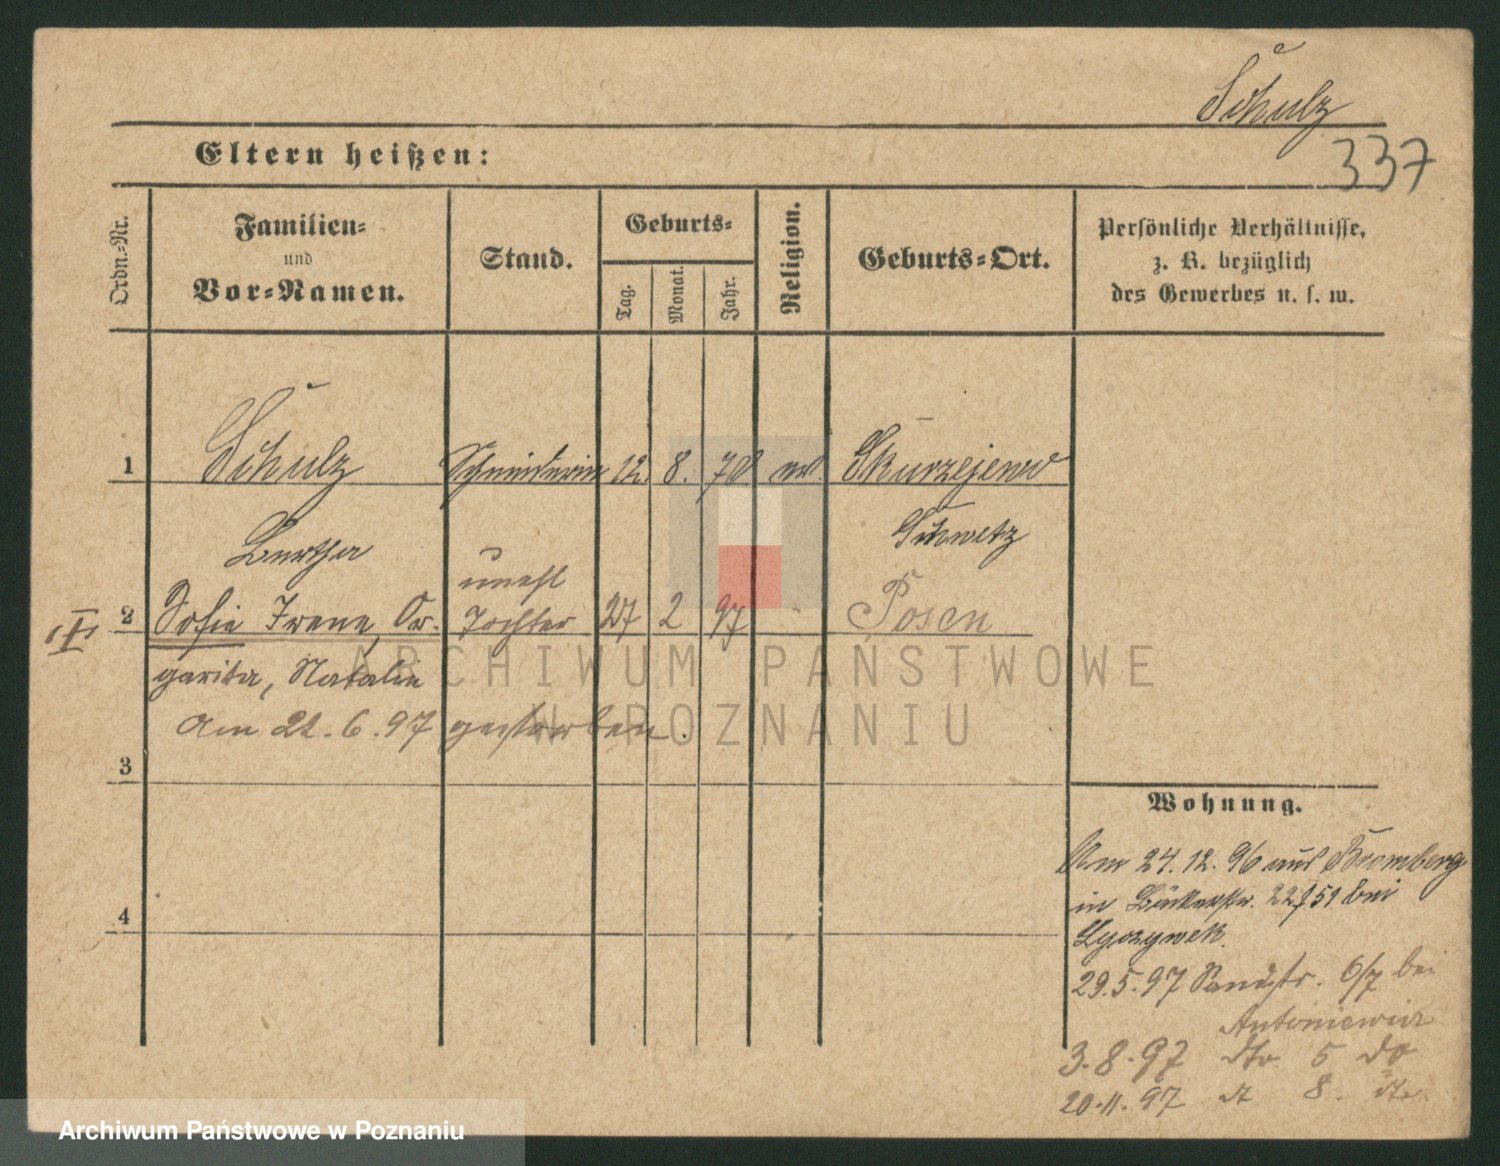 Schulz
337
Eltern heißen:
Ordn.-Nr.
Familien-
und
Vor-Namen.
Stand.
Geburts-
Tag.
Monat.
Jahr.
Religion.
Geburts-Ort.
Persönliche Verhältnisse,
z. B. bezüglich
des Gewerbes u. s. w.
1 Schulz Schneiderin 12. 8. 70 ev. Skurzejewo
Bertha Schwetz
unehl
2 Sofie Irene, Mar- Tochter 27 2 97 Posen
garita, Natalie
am 21.6.97 gestorben.
3
4
Wohnung.
Am 24.12.96 aus Bromberg
in Bäckerstr. 22 bei
29.5.97 Sandstr. 6/7 bei
Antoniewicz
3.8.97 dto 5 do
20.11.97 dt 8. dto
ARCHIWUM PAŃSTWOWE
W POZNANIU
Archiwum Państwowe w Poznaniu